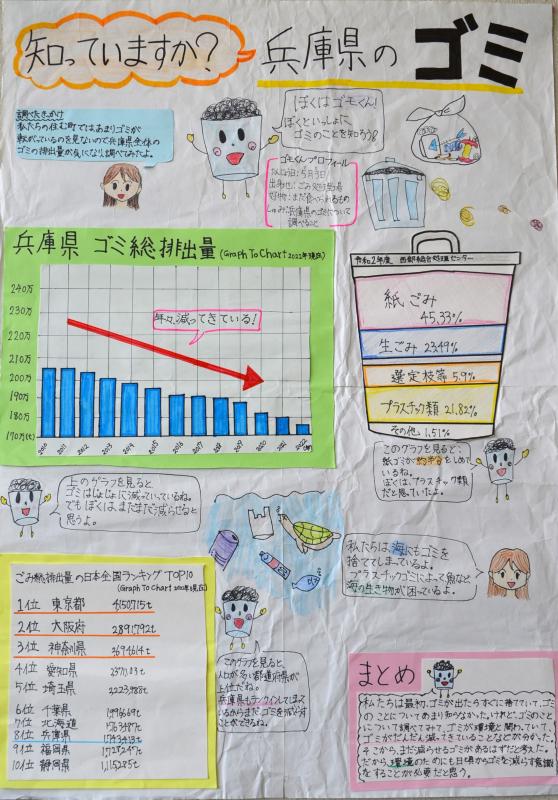 知っていますか？
兵庫県の ゴミ
調べたきっかけ
私たちの住む町では、あまりゴミが
転がっているのを見ないので兵庫県全体の
ゴミの排出量が気になり、調べてみたよ。
ぼくはゴモくん!
ぼくといっしょに
ゴミのことを知ろう
ゴモくんプロフィール
5月3日
ごみ処理場
兵庫県 ゴミ総排出量 (Graph To Chart 2022年現在)
240万
230万
220万
210万
200万
190万
180万
170万(t)
年々、減ってきている!
2010 2011 2012 2013 2014 2015 2016 2017 2018 2019 2020 2021 2022
令和2年度 西部総合処理センター
紙ごみ
45.33%
生ごみ 23.49%
選定枝等 5.9%
プラスチック類 21.82%
その他 1.51%
このグラフを見ると、
紙ゴミが約半分をしめて
いるね。
ぼくは、プラスチック類
だと思っていたよ。
上のグラフを見ると
ゴミはじょじょに減っていっているね。
でもぼくは、まだまだ減らせると
思うよ。
私たちは、海にもゴミを
捨ててしまっているよ。
プラスチックゴミによって魚など
海の生き物が困っているよ。
ごみ総排出量の日本全国ランキングTOP10
1位 東京都 4150715t
2位 大阪府 2891792t
3位 神奈川県
4位 愛知県
5位 埼玉県
6位 千葉県
7位 北海道
8位 兵庫県
9位 福岡県
10位 静岡県
このグラフを見ると、
人口が多い都道府県が
上位だね。
兵庫県もランクインしてしまって
いるからまだゴミを減らす
ことができるね。
まとめ
私たちは最初、ゴミが出たらすぐに捨てていて、ゴミ
のことについてあまり知らなかった。けれど、ゴミのこと
について調べてみて、ゴミが環境と関わっていて、
ゴミがだんだん減ってきていることなどが分かった。
そこから、まだ減らせるゴミがあるはずだと考えた。
だから、環境のためにも日頃からゴミを減らす意識
をすることが必要だと思う。